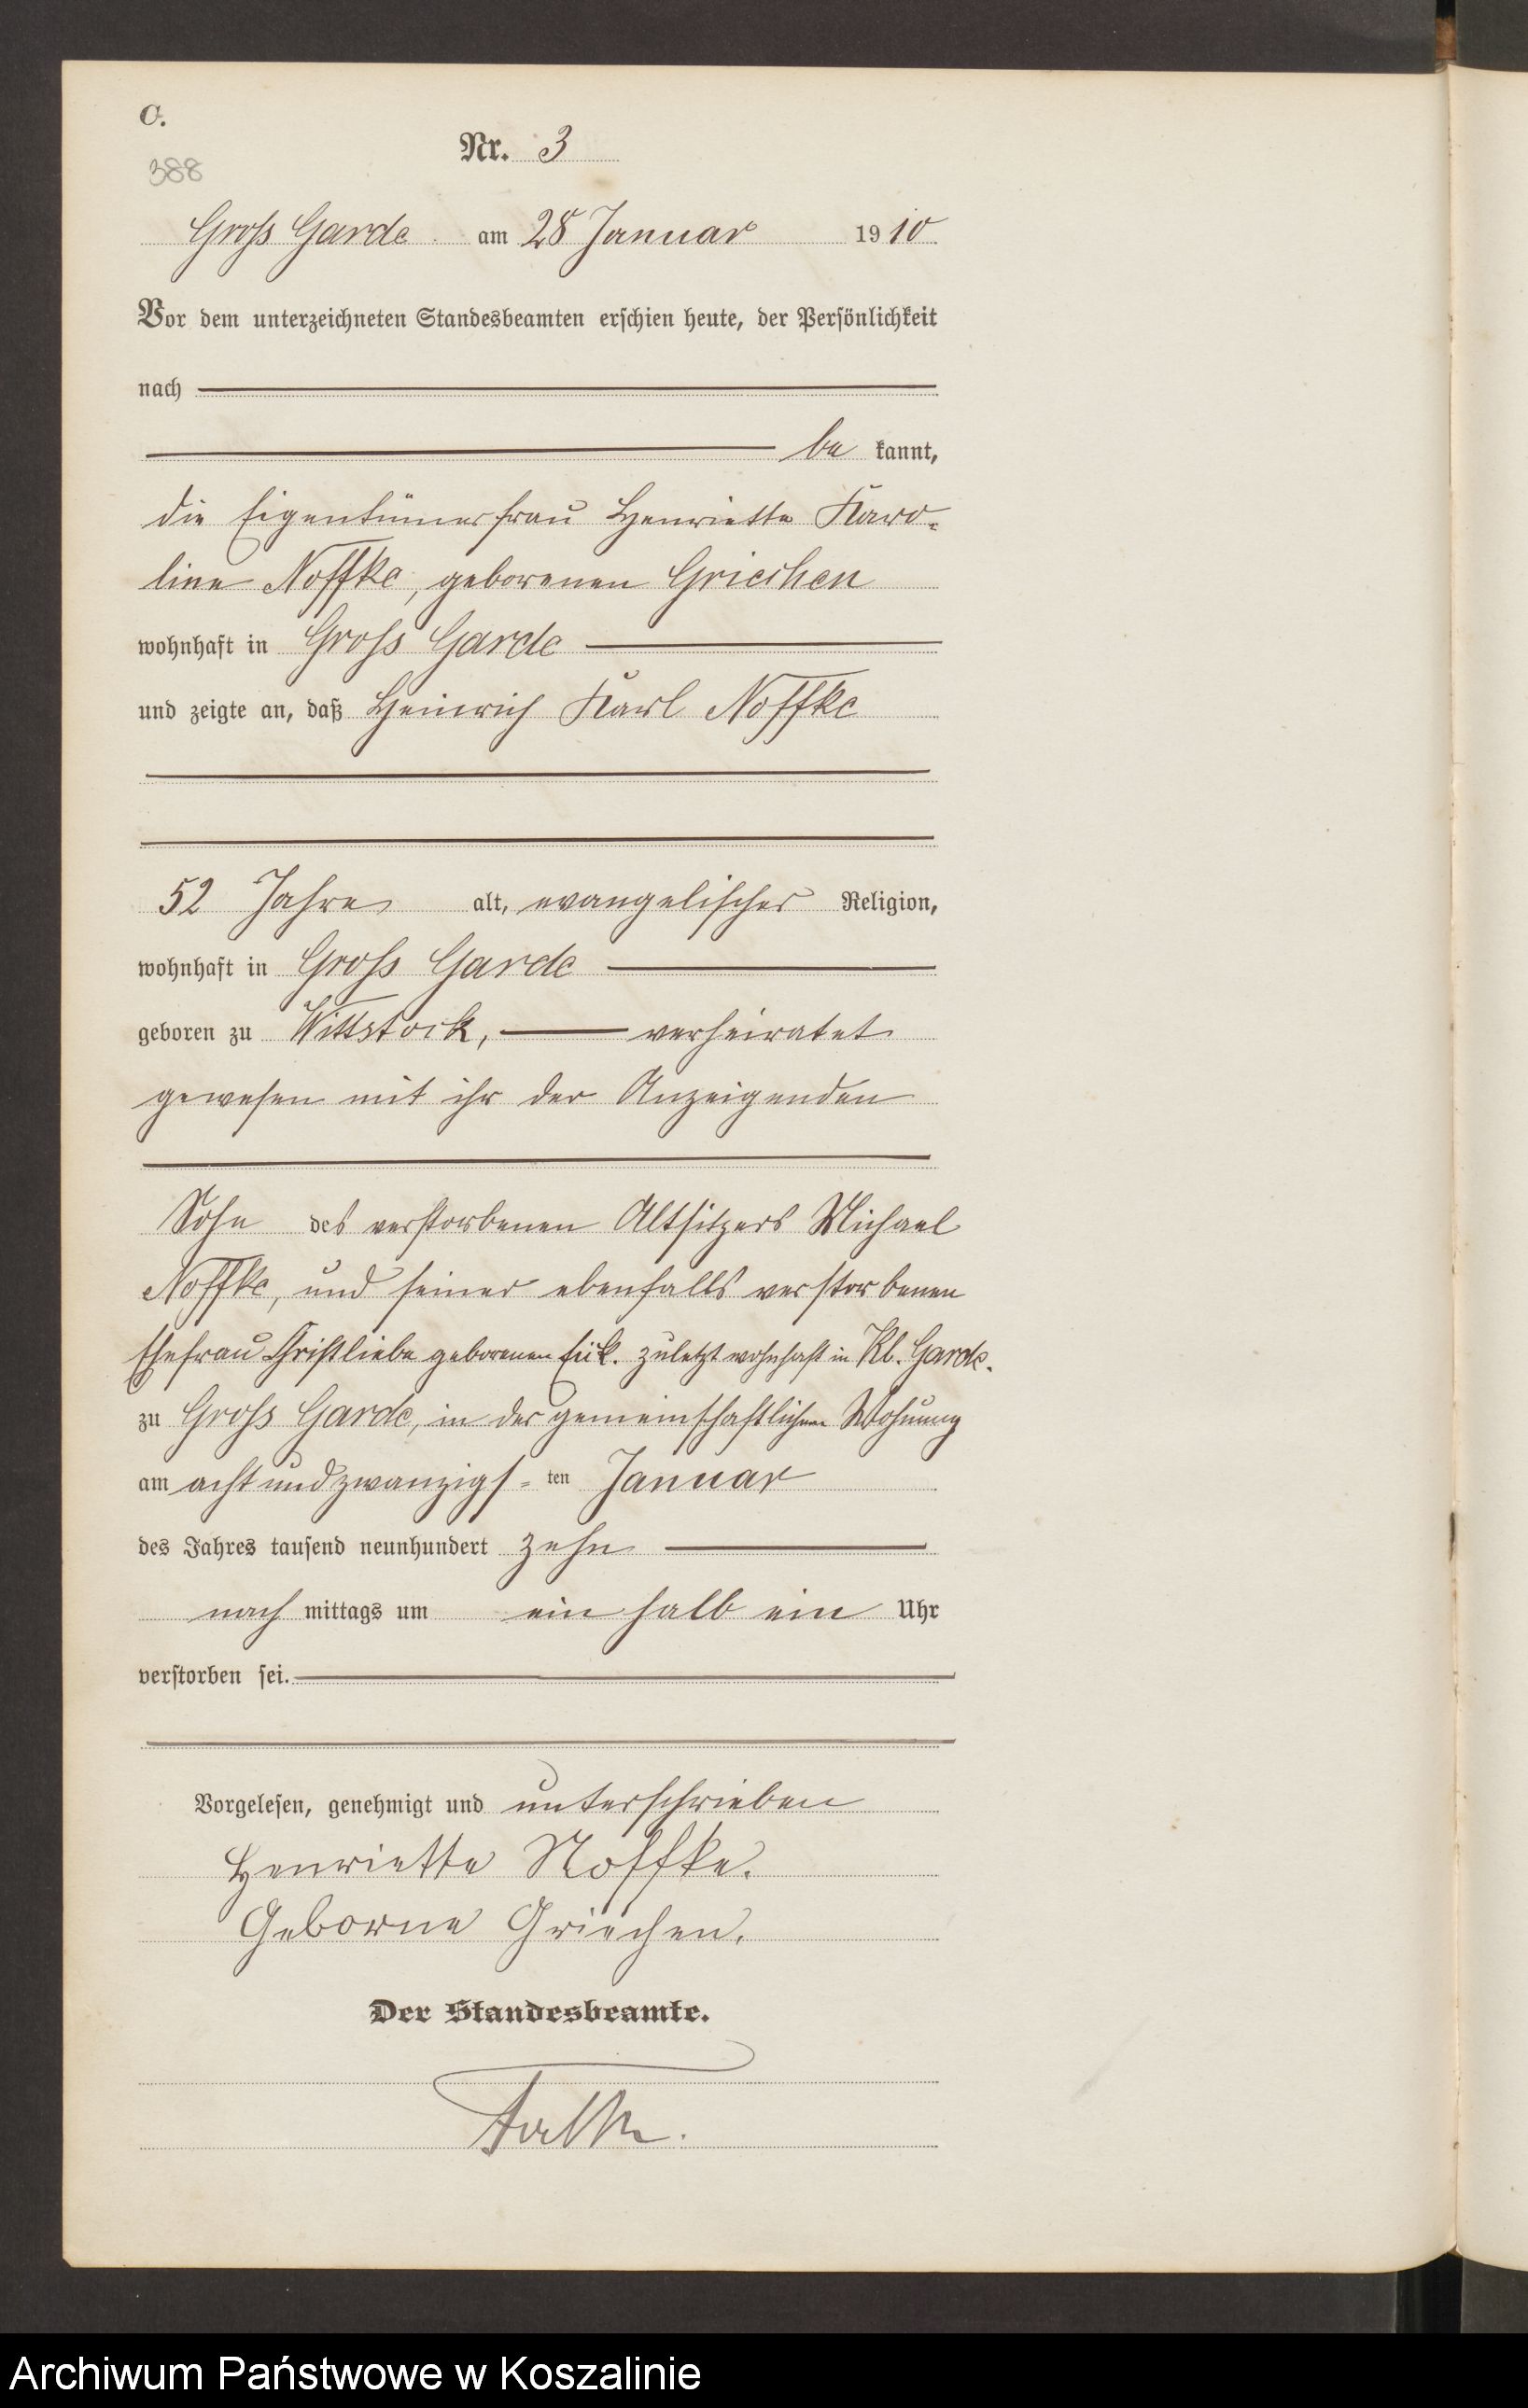 C.
Nr. 3
388
Gross Garde am 28 Januar 1910
Vor dem unterzeichneten Standesbeamten erschien heute, der Persönlichkeit
nach
be kannt,
die Eigentümerfrau Henriette Karo-
line Noffke, geborenen Griechen
wohnhaft in Gross Garde
und zeigte an, daß Heinrich Karl Noffke
52 Jahre alt, evangelischer Religion,
wohnhaft in Gross Garde
geboren zu Wittstock, verheiratet
gewesen mit ihr der Anzeigenden
Sohn des verstorbenen Altsitzers Michael
Noffke, und seiner ebenfalls verstorbenen
Ehefrau Christliebe geborenen zuletzt wohnhaft in Kl. Garde.
zu Gross Garde, in der gemeinschaftlichen Wohnung
am achtundzwanzigs-ten Januar
des Jahres tausend neunhundert zehn
nach mittags um ein halb ein Uhr
verstorben sei.
Vorgelesen, genehmigt und unterschrieben
Henriette Noffke.
Geborne Griechen.
Der Standesbeamte.
Archiwum Państwowe w Koszalinie